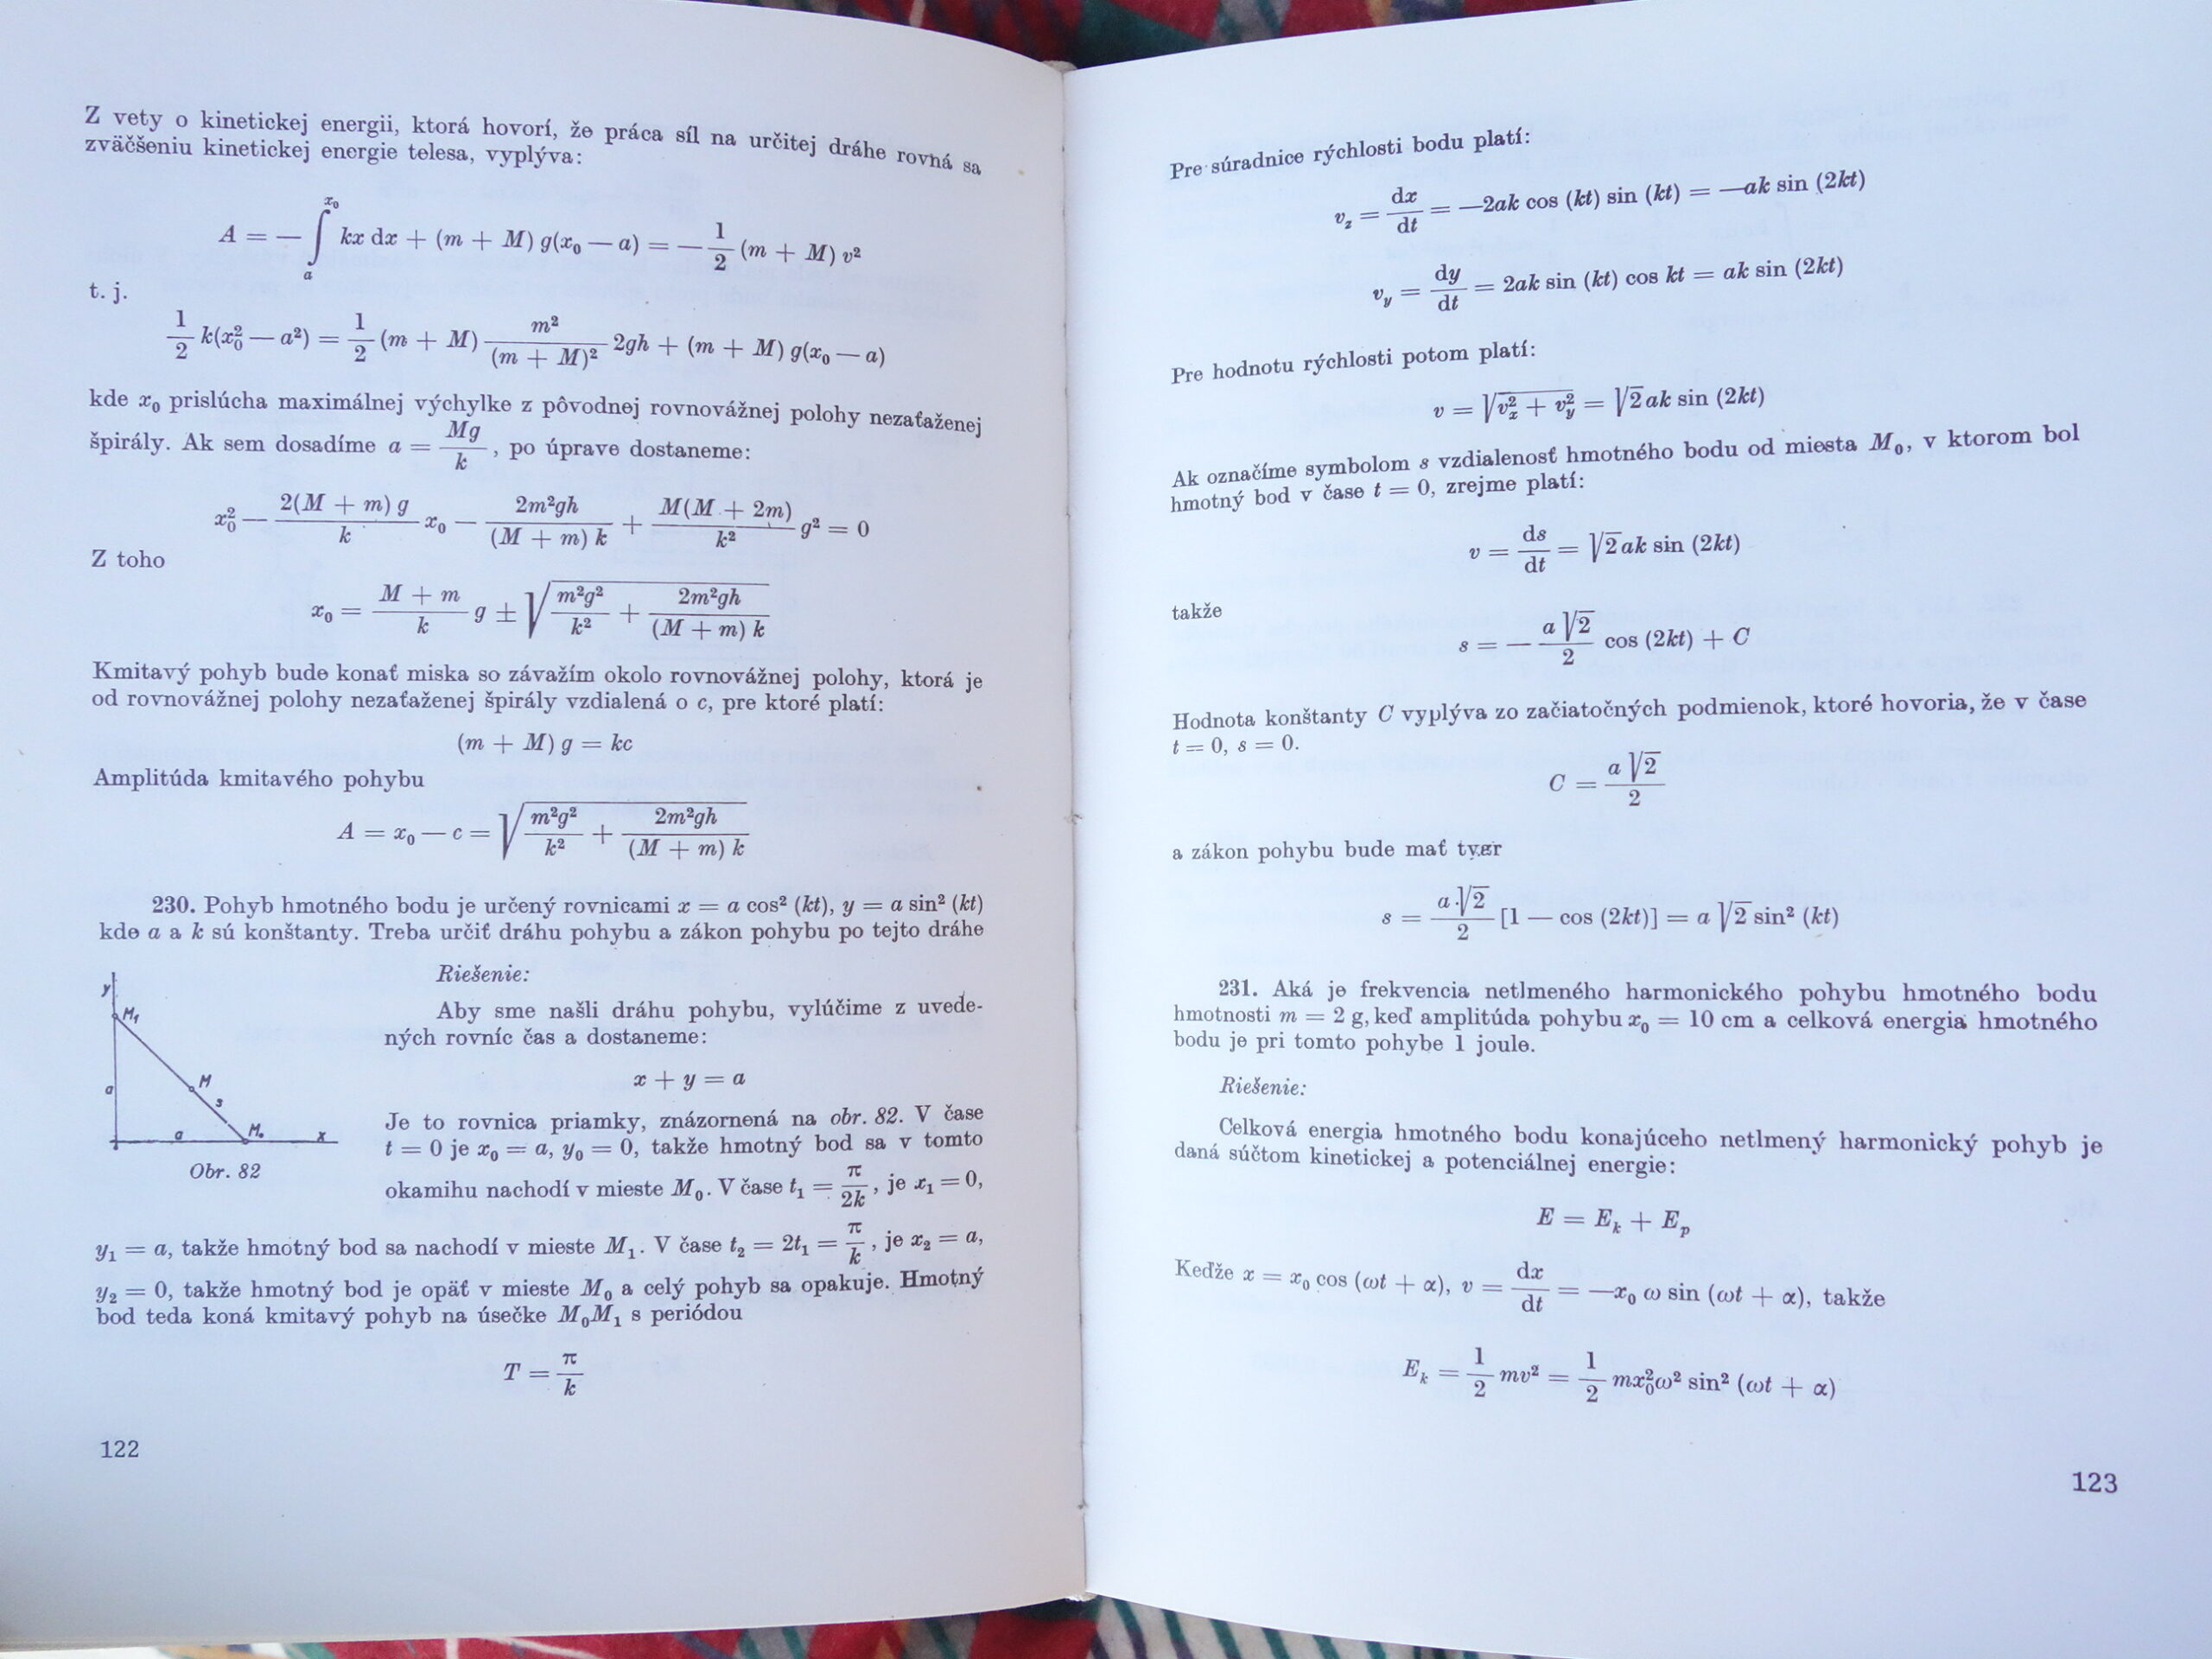 Z vety o kinetickej energii, ktorá hovorí, že práca síl na určitej dráhe rovná sa
zväčšeniu kinetickej energie telesa, vyplýva:
A = — ∫ₐ^{x₀} kx dx + (m + M) g(x₀ — a) = — 1/2 (m + M) v²
t. j.
1/2 k(x₀² — a²) = 1/2 (m + M) m²/(m + M)² 2gh + (m + M) g(x₀ — a)
kde x₀ prislúcha maximálnej výchylke z pôvodnej rovnovážnej polohy nezaťaženej
špirály. Ak sem dosadíme a = Mg/k, po úprave dostaneme:
x₀² — 2(M + m) g/k x₀ — 2m²gh/(M + m) k + M(M + 2m)/k² g² = 0
Z toho
x₀ = M + m/k g ± √(m²g²/k² + 2m²gh/(M + m) k)
Kmitavý pohyb bude konať miska so závažím okolo rovnovážnej polohy, ktorá je
od rovnovážnej polohy nezaťaženej špirály vzdialená o c, pre ktoré platí:
(m + M) g = kc
Amplitúda kmitavého pohybu
A = x₀ — c = √(m²g²/k² + 2m²gh/(M + m) k)
230. Pohyb hmotného bodu je určený rovnicami x = a cos² (kt), y = a sin² (kt)
kde a a k sú konštanty. Treba určiť dráhu pohybu a zákon pohybu po tejto dráhe
y
M₁
M
s
a
a
M₀
x
Obr. 82
Riešenie:
Aby sme našli dráhu pohybu, vylúčime z uvede-
ných rovníc čas a dostaneme:
x + y = a
Je to rovnica priamky, znázornená na obr. 82. V čase
t = 0 je x₀ = a, y₀ = 0, takže hmotný bod sa v tomto
okamihu nachodí v mieste M₀. V čase t₁ = π/2k, je x₁ = 0,
y₁ = a, takže hmotný bod sa nachodí v mieste M₁. V čase t₂ = 2t₁ = π/k, je x₂ = a,
y₂ = 0, takže hmotný bod je opäť v mieste M₀ a celý pohyb sa opakuje. Hmotný
bod teda koná kmitavý pohyb na úsečke M₀M₁ s periódou
T = π/k
122
Pre súradnice rýchlosti bodu platí:
v_z = dx/dt = —2ak cos (kt) sin (kt) = —ak sin (2kt)
v_y = dy/dt = 2ak sin (kt) cos kt = ak sin (2kt)
Pre hodnotu rýchlosti potom platí:
v = √(v_x² + v_y²) = √2 ak sin (2kt)
Ak označíme symbolom s vzdialenosť hmotného bodu od miesta M₀, v ktorom bol
hmotný bod v čase t = 0, zrejme platí:
v = ds/dt = √2 ak sin (2kt)
takže
s = — a √2/2 cos (2kt) + C
Hodnota konštanty C vyplýva zo začiatočných podmienok, ktoré hovoria, že v čase
t = 0, s = 0.
C = a √2/2
a zákon pohybu bude mať tvar
s = a √2/2 [1 — cos (2kt)] = a √2 sin² (kt)
231. Aká je frekvencia netlmeného harmonického pohybu hmotného bodu
hmotnosti m = 2 g, keď amplitúda pohybu x₀ = 10 cm a celková energia hmotného
bodu je pri tomto pohybe 1 joule.
Riešenie:
Celková energia hmotného bodu konajúceho netlmený harmonický pohyb je
daná súčtom kinetickej a potenciálnej energie:
E = E_k + E_p
Keďže x = x₀ cos (ωt + α), v = dx/dt = —x₀ ω sin (ωt + α), takže
E_k = 1/2 mv² = 1/2 mx₀²ω² sin² (ωt + α)
123